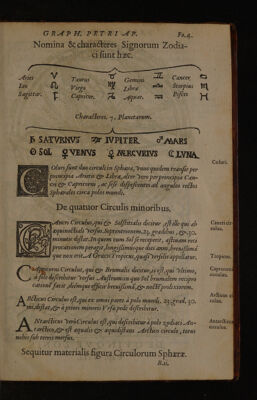 GRAPH. PETRI AP. Fo. 4.
Nomina & characteres Signorum Zodia-
ci sunt hæc.
Aries ♈ Taurus ♉ Gemini ♊ Cancer ♋
Leo ♌ Virgo ♍ Libra ♎ Scorpius ♏
Sagittar. ♐ Capricor. ♑ Aquar. ♒ Pisces ♓
Characteres, 7, Planetarum.
♄ SATVRNVS ♃ IVPITER ♂ MARS
☉ SOL ♀ VENVS ☿ MERCVRIVS ☾ LVNA.
Coluri sunt duo circuli in Sphæra, quorum
principia Arietis & Libræ, alter vero per principia Can-
cri & Capricorni, ac sese dispescentes ad angulos rectos
Sphærales circa polos mundi.
Coluri.
De quatuor Circulis minoribus.
Cancri Circulus, qui & Solstitialis dicitur, est ille qui ab
æquinoctiali versus Septentrionem, 23, gradibus, & 30.
minutis distat. In quem cum Sol
procursionem peragit, longissimumque diei
que nox erit. A Græcis Tropicus, quasi versilis appellatur.
Cancri cir-
culus.
Tropicus.
Capricorni Circulus, qui & Brumalis dicitur, is est, qui vltimo,
à Sole describitur versus Austrum:
rationé facit, diemque efficit breuissimã, & nocté
Capricorni
circulus.
Arcticus Circulus est, qui ex omni parte à polo mundi, 23, grad. 30.
mi, distat, & à priore minoris Vrsæ pede describitur.
Arcticus cir-
culus.
Antarcticus verò Circulus est, qui describitur à polo zodiaci An-
tarctico, & est æqualis & æquidistans Arctico circulo, totus
nobis sub terris mersus.
Antarcticus
circulus.
Sequitur materialis figura Circulorum Sphæræ.